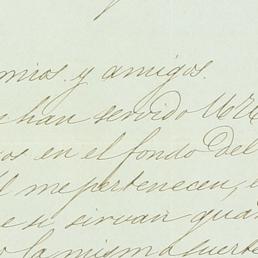 mios y amigos.
han servido U
os en el fondo del
me pertenecen, e
e se sirvan gua
o la misma suerte